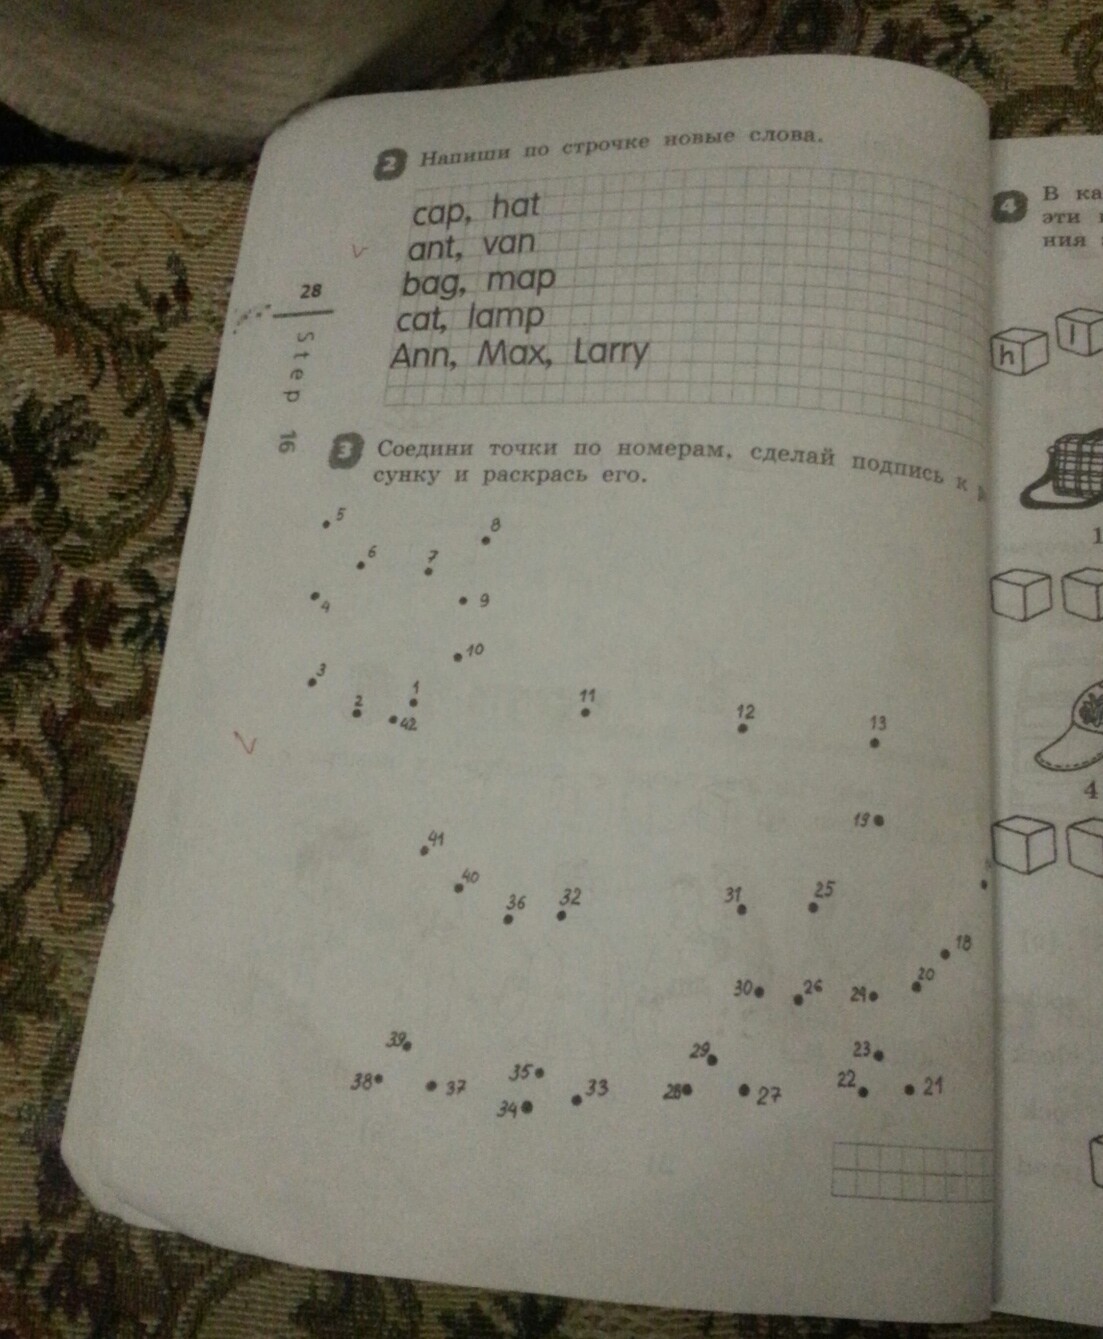 2 Напиши по строчке новые слова.
cap, hat
ant, van
bag, map
cat, lamp
Ann, Max, Larry
28
Step 16
3 Соедини точки по номерам, сделай подпись к
сунку и раскрась его.
5
8
6
7
4
9
10
3
1
2
42
11
12
13
19
41
40
36
32
31
25
18
20
30
26
24
39
29
23
38
37
35
33
28
27
22
21
34
4 В ка
эти
ния
h
l
1
4